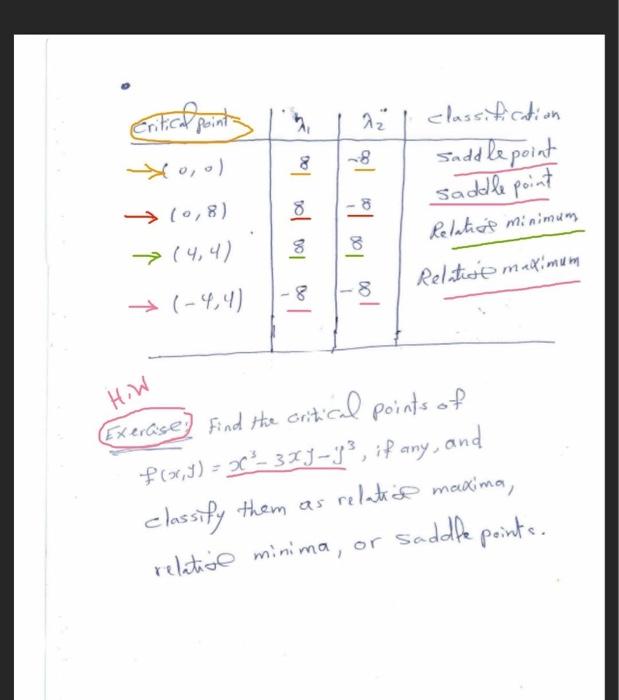 Critical point | λ₁ | λ₂ | classification
→ (0,0) | 8 | -8 | saddle point
→ (0,8) | 8 | -8 | saddle point
→ (4,4) | 8 | 8 | Relative minimum
→ (-4,4) | -8 | -8 | Relative maximum
H.W
Exercise: Find the critical points of
f(x,y) = x³ - 3xy - y³, if any, and
classify them as relative maxima,
relative minima, or saddle points.